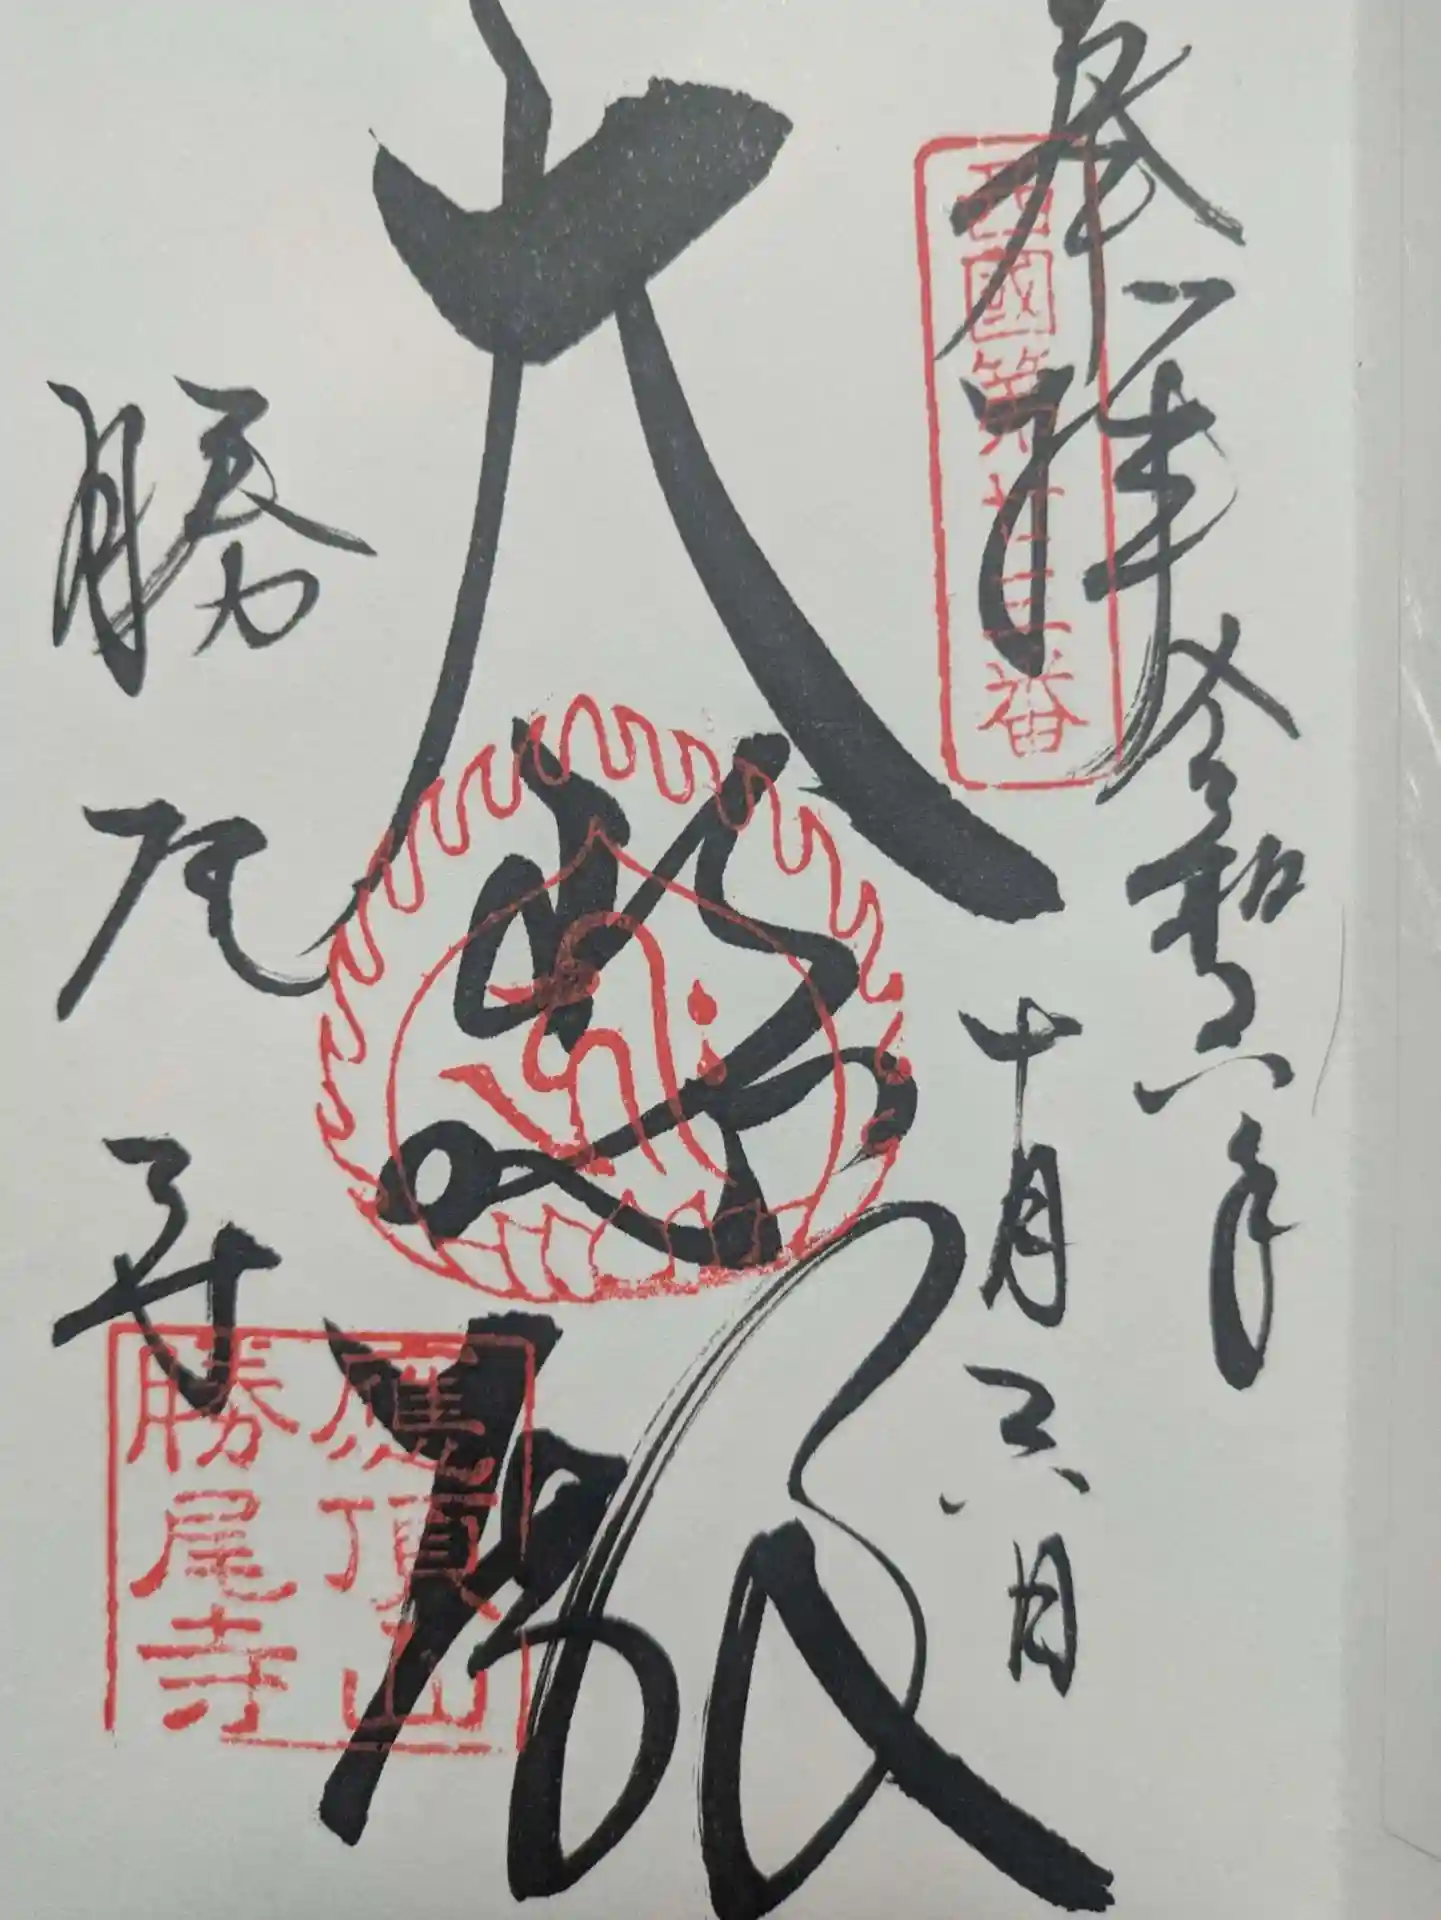 奉拝
令和六年
十月六日
西國第廿三番
大悲殿
勝尾寺
應頂山
勝尾寺